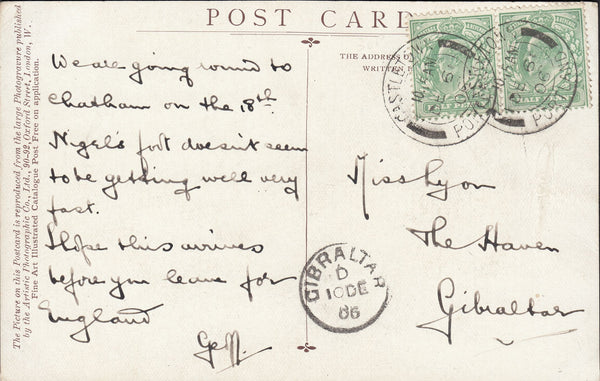 POST CARD
THE ADDRESS
WRITTEN
The Picture on this Postcard is reproduced from the large Photogravure published
by the Artistic Photographic Co., Ltd., 90-92, Oxford Street, London, W.
Fine Art Illustrated Catalogue Post Free on application.
We are going round to
Chatham on the 18th
Nigel's foot doesn't seem
to be getting well very
fast.
I hope this arrives
before you leave for
England
Geff.
Miss Lyon
The Haven
Gibraltar
GIBRALTAR
D
10 DE
06